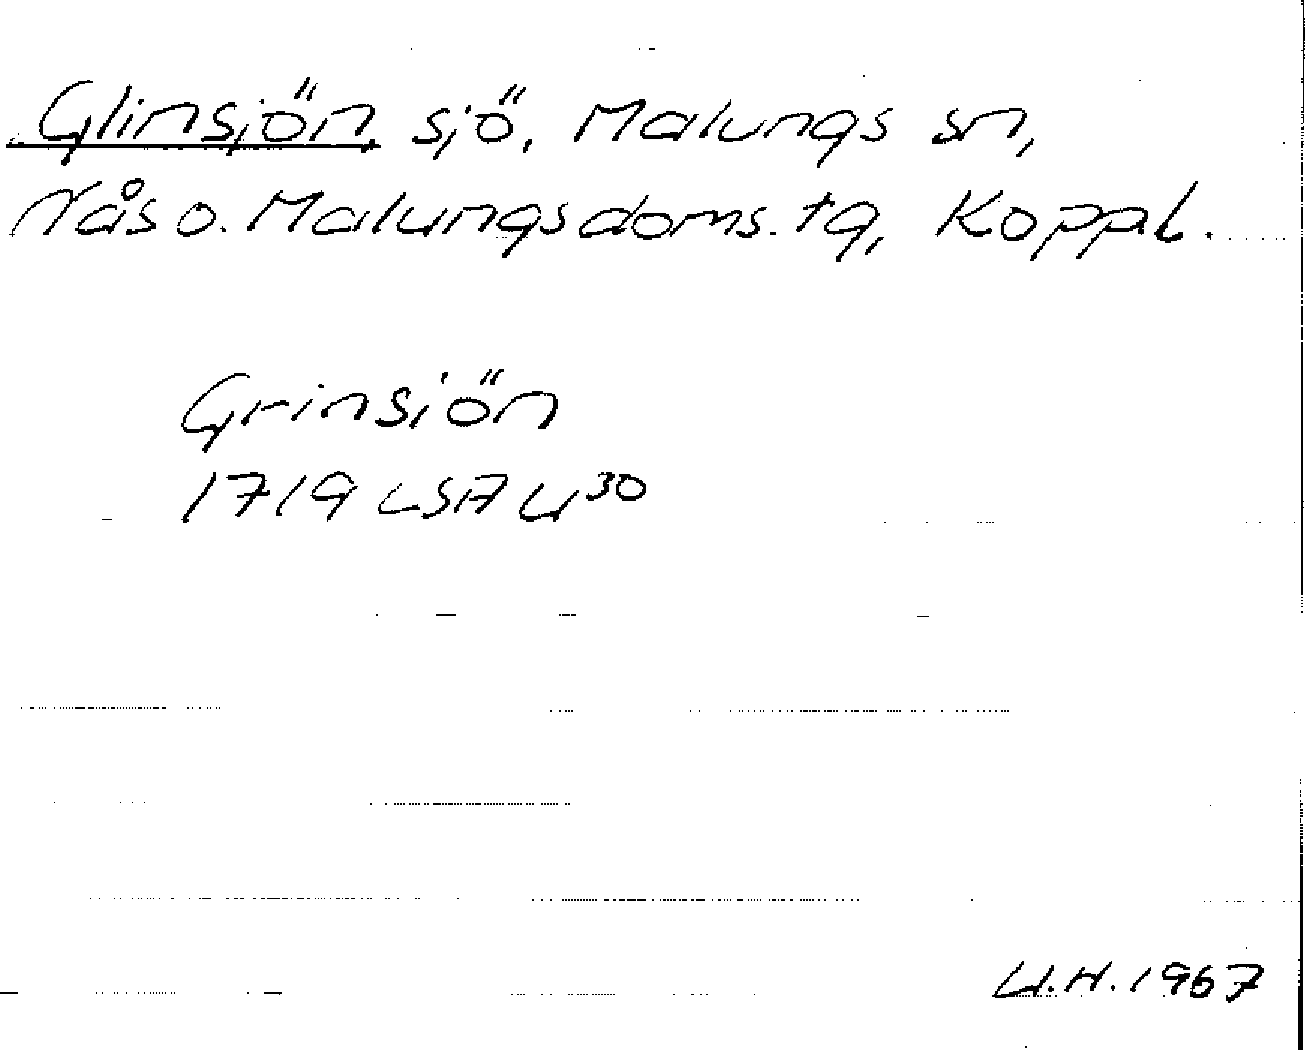 Glinsjön, sjö, Malungs sn,
Nås o. Malungs doms. tg, Koppl.
Grinsiön
1719 LSA U³⁰
U.H. 1967